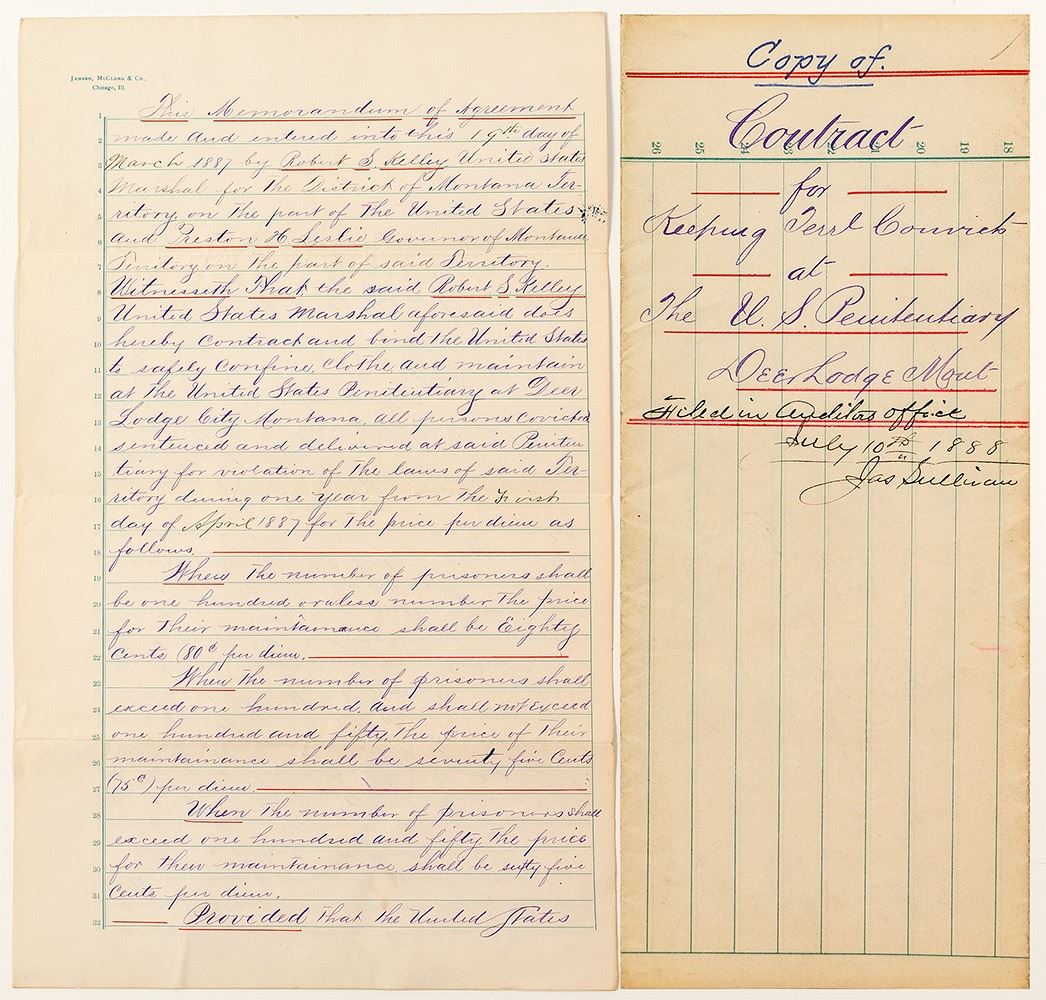 Jansen, McClurg & Co.,
Chicago, Ill.
1 This Memorandum of Agreement
2 made and entered into this 19th day of
3 March 1887 by Robert S Kelley United States
4 Marshal for the District of Montana Ter-
5 ritory, on the part of The United States
6 and Preston H Leslie Governor of Montana
7 Territory on the part of said Territory.
8 Witnesseth That, the said Robert S Kelley
9 United States Marshal aforesaid does
10 hereby contract and bind the United States
11 to safely confine, clothe and maintain
12 at the United States Penitentiary at Deer
13 Lodge City Montana, all persons covicted
14 sentenced and delivered at said Peniten
15 tiary for violation of the laws of said Ter-
16 ritory during one year from the First
17 day of April 1887 for the price per diem as
18 follows.
19 When the number of prisoners shall
20 be one hundred or a less number the price
21 for their maintainance shall be Eighty
22 Cents (80c per diem.
23 When the number of prisoners shall
24 exceed one hundred, and shall not exceed
25 one hundred and fifty, the price of their
26 maintainance shall be seventy five Cents
27 (75c) per diem.
28 When the number of prisoners shall
29 exceed one hundred and fifty the price
30 for their maintainance, shall be sixty five
31 Cents per diem.
32 Provided That the United States
Copy of.
Contract
26 25 24 23 22 21 20 19 18
for
Keeping Terrl Convicts
at
The U. S. Penitentiary
Deer Lodge Mont
Filed in Auditors office
July 10th 1888
Jas Sullivan